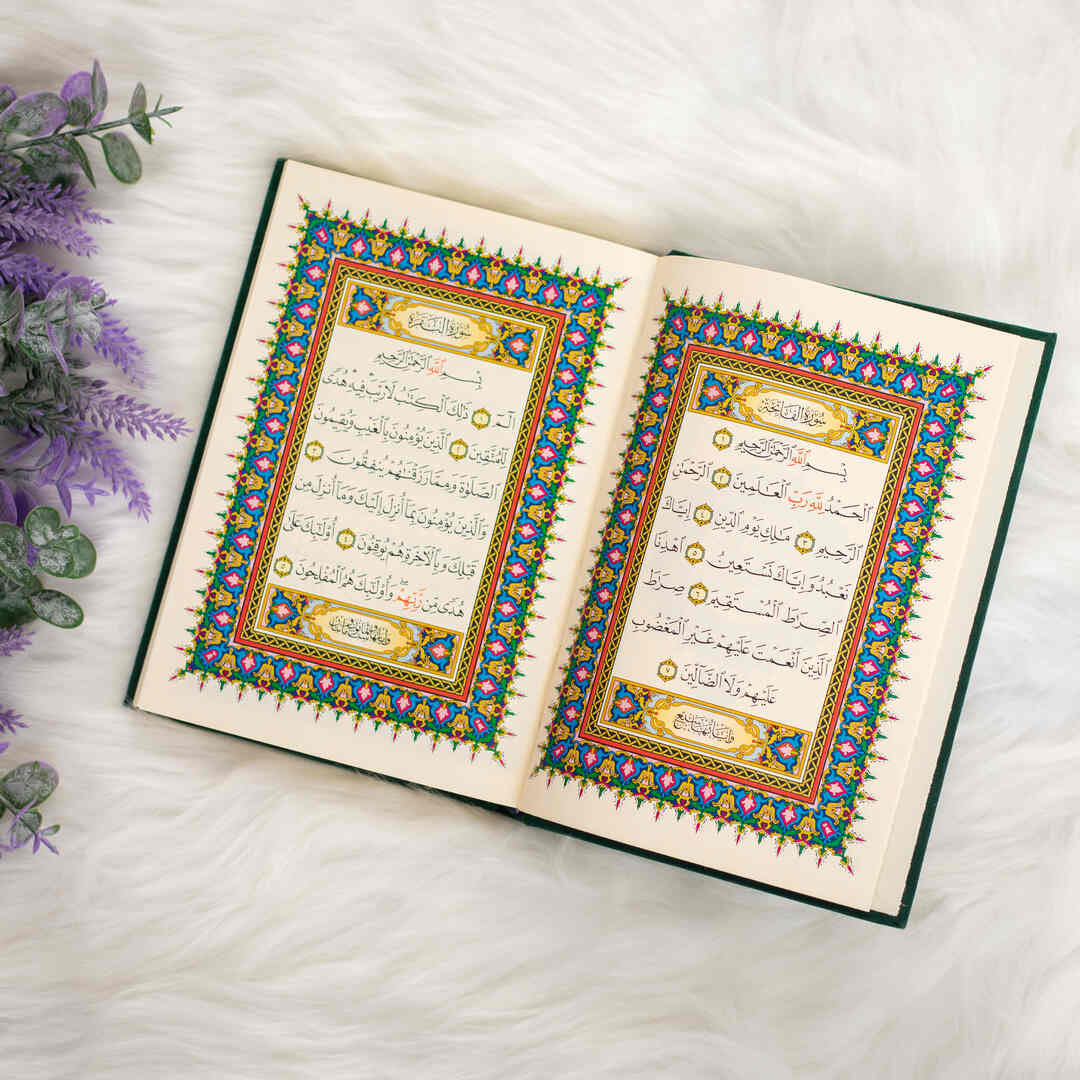 سُورَةُ الفَاتِحَةِ
بِسْمِ ٱللَّهِ ٱلرَّحْمَٰنِ ٱلرَّحِيمِ ١
ٱلْحَمْدُ لِلَّهِ رَبِّ ٱلْعَٰلَمِينَ ٢ ٱلرَّحْمَٰنِ
ٱلرَّحِيمِ ٣ مَٰلِكِ يَوْمِ ٱلدِّينِ ٤ إِيَّاكَ
نَعْبُدُ وَإِيَّاكَ نَسْتَعِينُ ٥ ٱهْدِنَا
ٱلصِّرَٰطَ ٱلْمُسْتَقِيمَ ٦ صِرَٰطَ
ٱلَّذِينَ أَنْعَمْتَ عَلَيْهِمْ غَيْرِ ٱلْمَغْضُوبِ
عَلَيْهِمْ وَلَا ٱلضَّآلِّينَ ٧
سُورَةُ البَقَرَةِ
بِسْمِ ٱللَّهِ ٱلرَّحْمَٰنِ ٱلرَّحِيمِ
الٓمٓ ١ ذَٰلِكَ ٱلْكِتَٰبُ لَا رَيْبَ فِيهِ هُدًى
لِّلْمُتَّقِينَ ٢ ٱلَّذِينَ يُؤْمِنُونَ بِٱلْغَيْبِ وَيُقِيمُونَ
ٱلصَّلَوٰةَ وَمِمَّا رَزَقْنَٰهُمْ يُنفِقُونَ ٣
وَٱلَّذِينَ يُؤْمِنُونَ بِمَآ أُنزِلَ إِلَيْكَ وَمَآ أُنزِلَ مِن
قَبْلِكَ وَبِٱلْءَاخِرَةِ هُمْ يُوقِنُونَ ٤ أُو۟لَٰٓئِكَ عَلَىٰ
هُدًى مِّن رَّبِّهِمْ ۖ وَأُو۟لَٰٓئِكَ هُمُ ٱلْمُفْلِحُونَ ٥